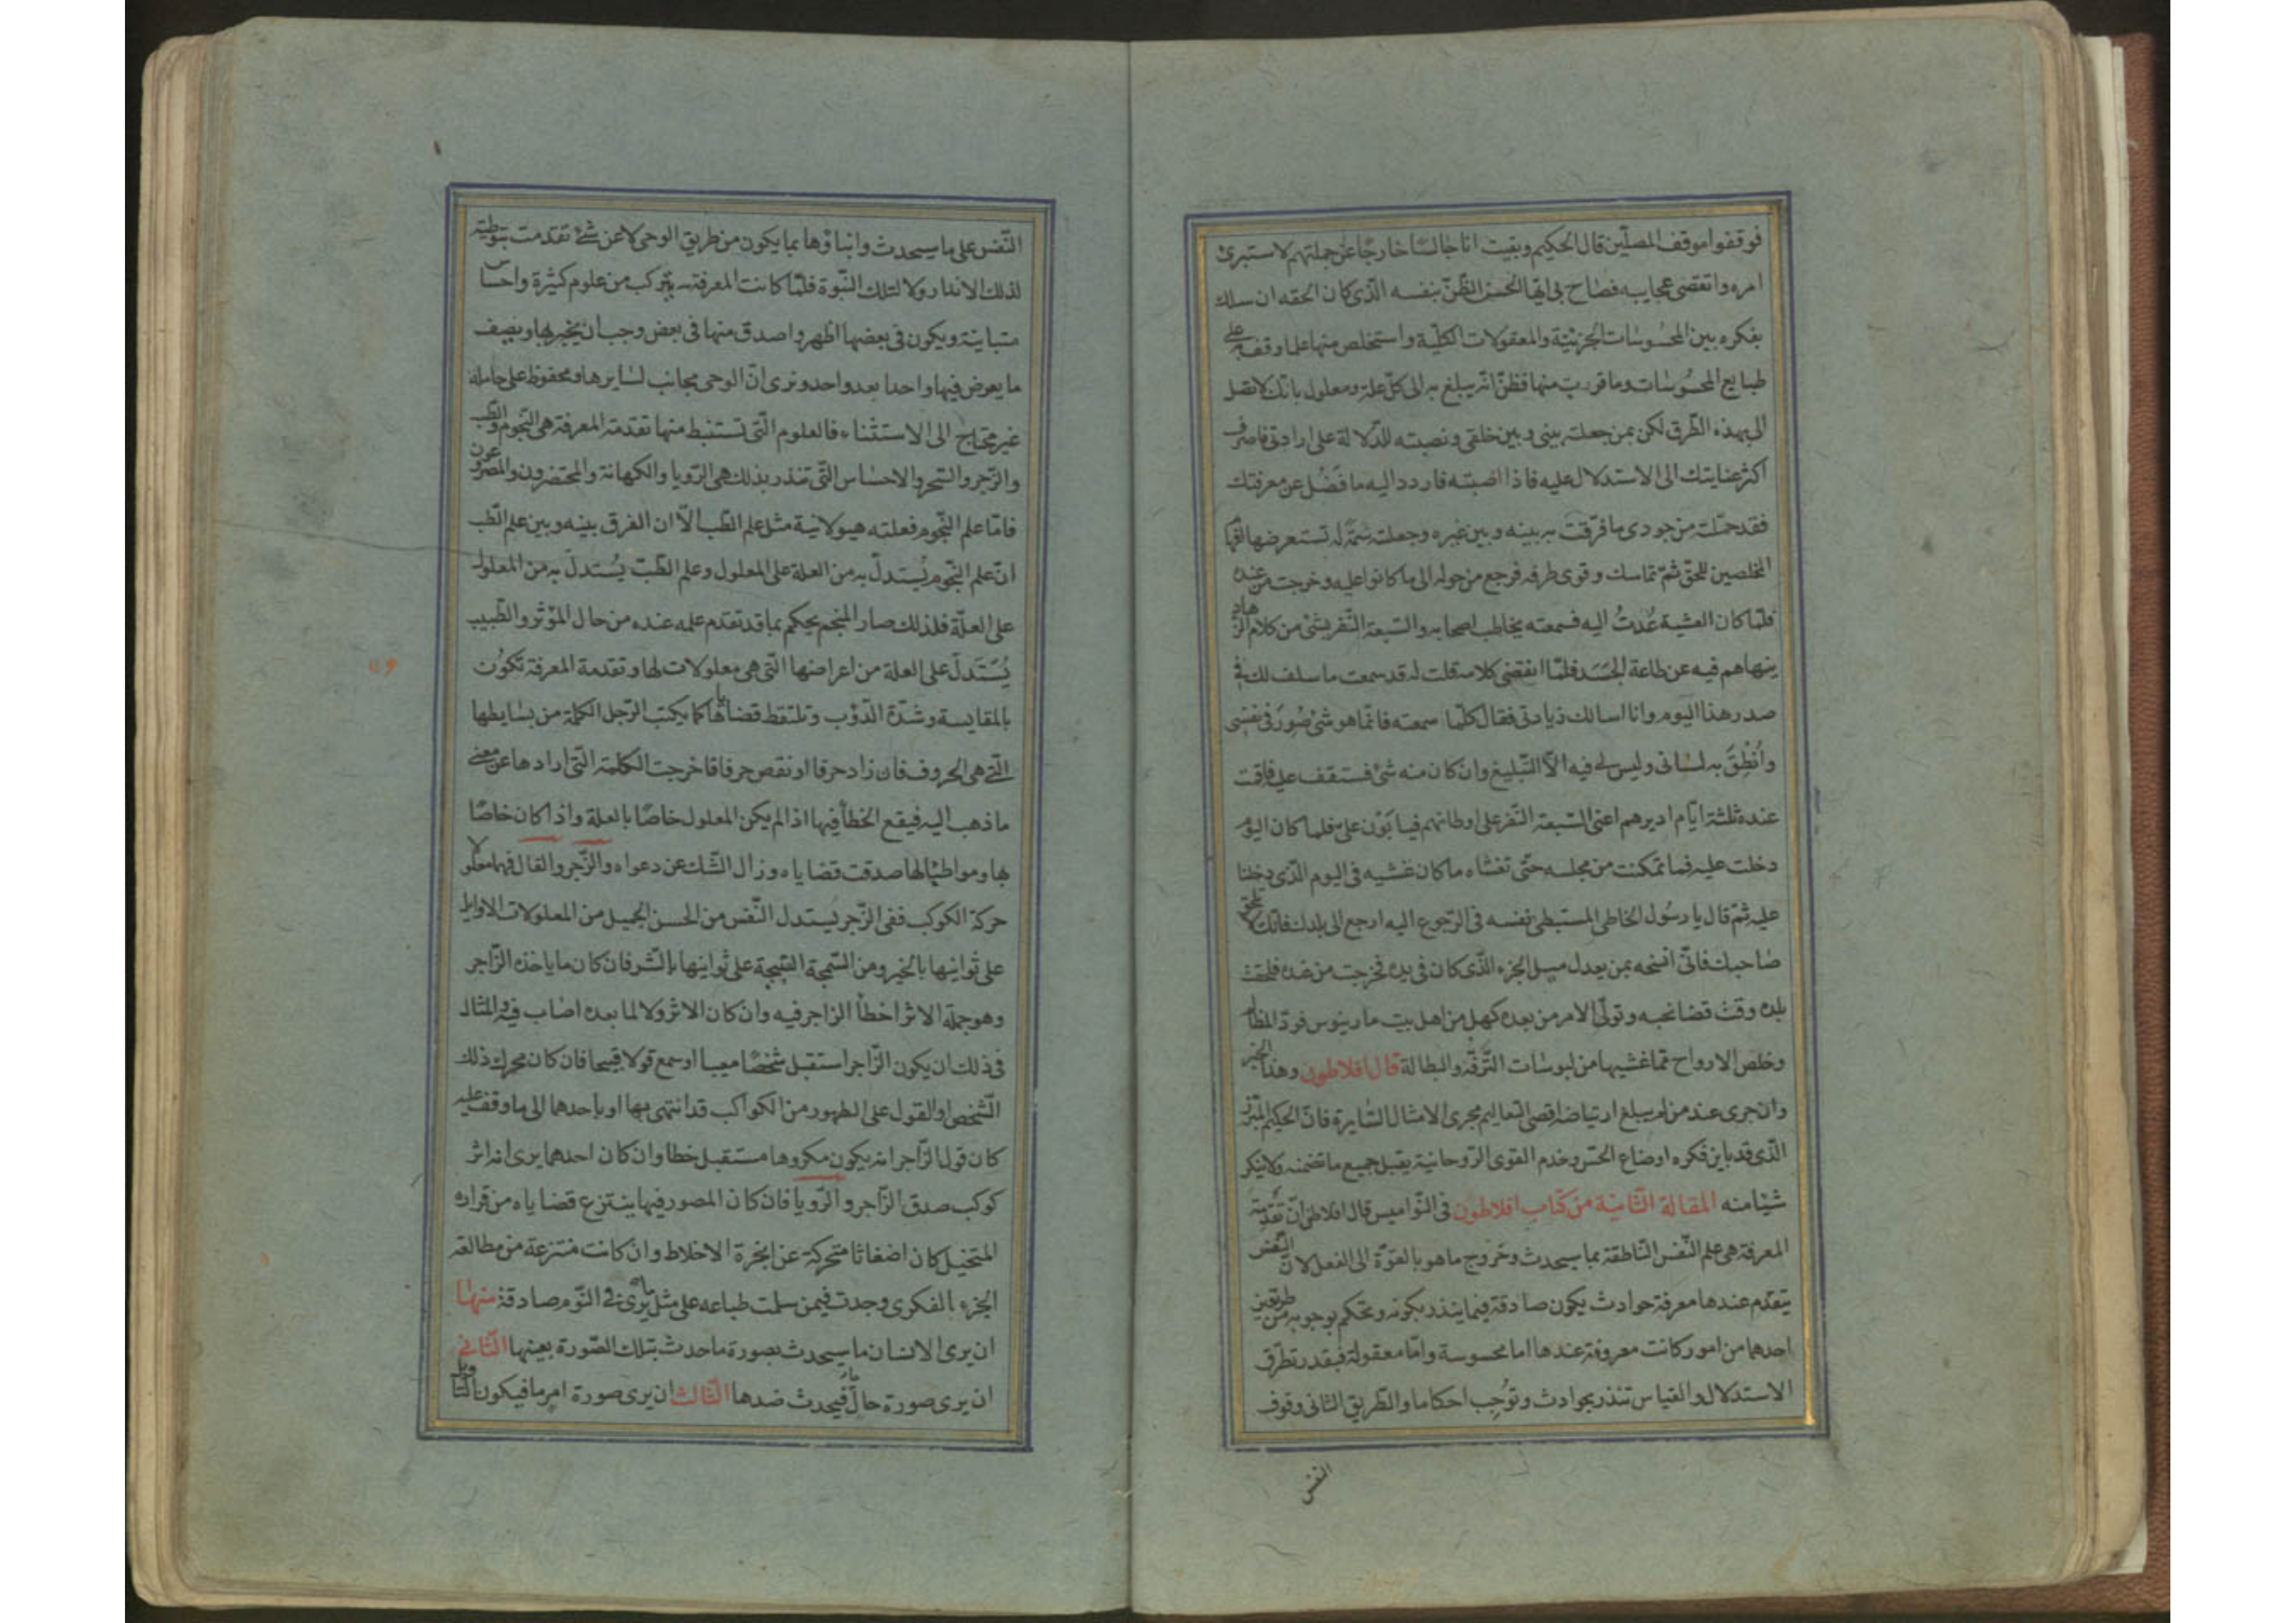 فوقفوا موقف المصلّين قال الحكيم وبقيت انا جالسًا خارجًا عن جملتهم لاستبرئ
امره واتقصى عجايبه فصاح بى ايّها الحسن الظّنّ بنفسه الّذى كان الحقه ان سلك
بفكره بين المحسوسات الجزئيّة والمعقولات الكلّية واستخلص منها علما وقف به على
طبايع المحسُوسات وما قرب منها فظنّ انّه يبلغ به الى كلّ علة ومعلول بانّك لا تصل
الى بهذه الطّرق لكن بمن جعلته بينى وبين خلقى ونصبته للدّلالة على ارادتى فاصرف
اكثر عنايتك الى الاستدلال عليه فاذا اصبته فاردد اليه ما فَضُل عن معرفتك
فقد حمّلته من جودى ما فرّقت به بينه وبين غيره وجعلته سِمَةً له تستعرضها
المخلصين للحقّ ثمّ تماسك وقوى طرفه فرجع من حوله الى ما كانوا عليه وخرجت من عنده
فلمّا كان العشية عُدتُ اليه فسمعته يخاطب اصحابه والسّبعة النّفر بشئ من كلام الزّهاد
ينهاهم فيه عن طاعة الجَسَد فلمّا انقضى كلامه قلت له قد سمعت ما سلف لك فى
صدر هذا اليوم وانا اسالك زيادتى فقال كلّما سمعته فانّما هو شئ صُوّرَ فى نفسى
وانُطِقَ به لسانى وليس لى فيه الاّ التّبليغ وان كان منه شئ فستقف عليه فاقمت
عنده ثلثة ايّام اديرهم اعنى السّبعة النّفر على اوطانهم فيابَوْن علىّ فلما كان اليوم
دخلت عليه فما تمكنت من مجلسه حتّى تغشاه ما كان غشيه فى اليوم الّذى دخلنا
عليه ثمّ قال يا رسُول الخاطى المستبطى نفسه فى الرّجوع اليه ارجع الى بلدك فانّك لا تلحق
صَاحبك فانّى انسخه بمن يعدل ميل الجزء الّذى كان فى يده فخرجت من عنده فلحقت
بلده وقت قضا نحبه وتولّى الامر من بعده كهل من اهل بيت مارينوس فردّ المظالم
وخلص الارواح ممّا غشيها من لبوسَات التَّرَفّه والبطالة قال افلاطون وهذا الخبر
وان جرى عند من لم يبلغ ارتياضه اقصى التعاليم مجرى الامثال السّايرة فانّ الحكيم المبّرز
الّذى قد باين فكره اوضاع الحسّ وخدم القوى الرّوحانيّة يقبل جميع ما تضمنه ولا ينكر
شيًا منه المقالة الثّانية من كتاب افلاطون فى النّواميس قال افلاطن انّ تَقْدِمة
المعرفة هى علم النّفس النّاطقة بما سيحدث وخروج ما هو بالقوّة الى الفعل لانّ النّفس
يتقدّم عندها معرفة حوادث يكون صادقة فيما ينذر بكونه وتحكم بوجوبه من طريقين
احدهما من امور كانت معروفة عندها اما محسوسة وامّا معقولة فبقدر تطرّق
الاستدلال والقياس تنذر بحوادث وتوُجِب احكاما والطّريق الثانى وقوف
النفس
النّفس على ما سيحدث وانباؤها بما يكون من طريق الوحى لا عن شئ تقدّمت بتوطئة
لذلك الانذار ولا لتلك النّبوة فلمّا كانت المعرفة يتركب من علوم كثيرة واحساس
متباينة ويكون فى بعضها اظهر واصدق منها فى بعض وجب ان يخبر بها ونصف
ما يعرض فيها واحدا بعد واحد ونرى انّ الوحى مجانب لسايرها ومحفوظ على حامله
غير محتاج الى الاستثناء فالعلوم الّتى تستنبط منها تقدمة المعرفة هى النّجوم والطّب
والزّجر والسّحر والاحسَاس الّتى تنذر بذلك هى الرّويا والكهانة والمحتضرون والمصروعون
فامّا علم النّجوم فعلته هيولانيّة مثل علم الطّب الاّ ان الفرق بينه وبين علم الطّب
انّ علم النّجوم يُستدلّ به من العلة على المعلول وعلم الطّبّ يُستدلّ به من المعلول
على العلّة فلذلك صار المنجم يحكم بما قد تقدّم علمه عنده من حال المؤثر والطّبيب
يُسَتدَلّ على العلة من اعراضها الّتى هى معلولات لها وتقدمة المعرفة تكوُن
بالمقايسة وشدّة الدّؤب وتلتقط قضاياها كما يكتب الرّجل الكلمة من بسَايطها
الّتى هى الحروف فان زاد حرفا او نقص حرفا خرجت الكلمة الّتى ارادها عن معنى
ما ذهب اليه فيقع الخطأ فيها اذا لم يكن المعلول خاصًا بالعلة واذا كان خاصًا
بها ومواطئًا لها صدقت قضاياه وزال الشّك عن دعواه والزّجر والفال فهما معلولا
حركة الكوكب ففى الزّجر يستدل النّفس من الحسن الجميل من المعلولات الاوايل
على ثوانيها بالخير ومن السّمجة القبيحة على ثوانيها بالشر فان كان ما ياخذه الزّاجر
وهو جملة الاثر اخطأ الزاجر فيه وان كان الاثر ولا لما بعده اصاب فيه والمثال
فى ذلك ان يكون الزّاجر استقبل شخصًا معيبا او سمع قولا قبيحا فان كان محرك ذلك
الشّخص او القول على الظهور من الكواكب قد انتهى بها او باحدهما الى ما وقف عليه
كان قول الزّاجر انه يكون مكروها مستقبل خطا وان كان احدهما يرى انه اثر
كوكب صدق الزّاجر والرّويا فان كان المصور فيها ينتزع قضاياه من قراره
المتخيل كان اضغاثا متحركة عن ابخرة الاخلاط وان كانت منتزعة من مطالعة
الجزء الفكرى وجدت فيمن سلمت طباعه على مثل ما يرى فى النّوم صادقة منها
ان يرى الانسان ما سيحدث بصورة ما حدث بتلك الصّورة بعينها الثّانى
ان يرى صورة حالٍ ما فيحدث ضدها الثّالث ان يرى صورة امر ما فيكون